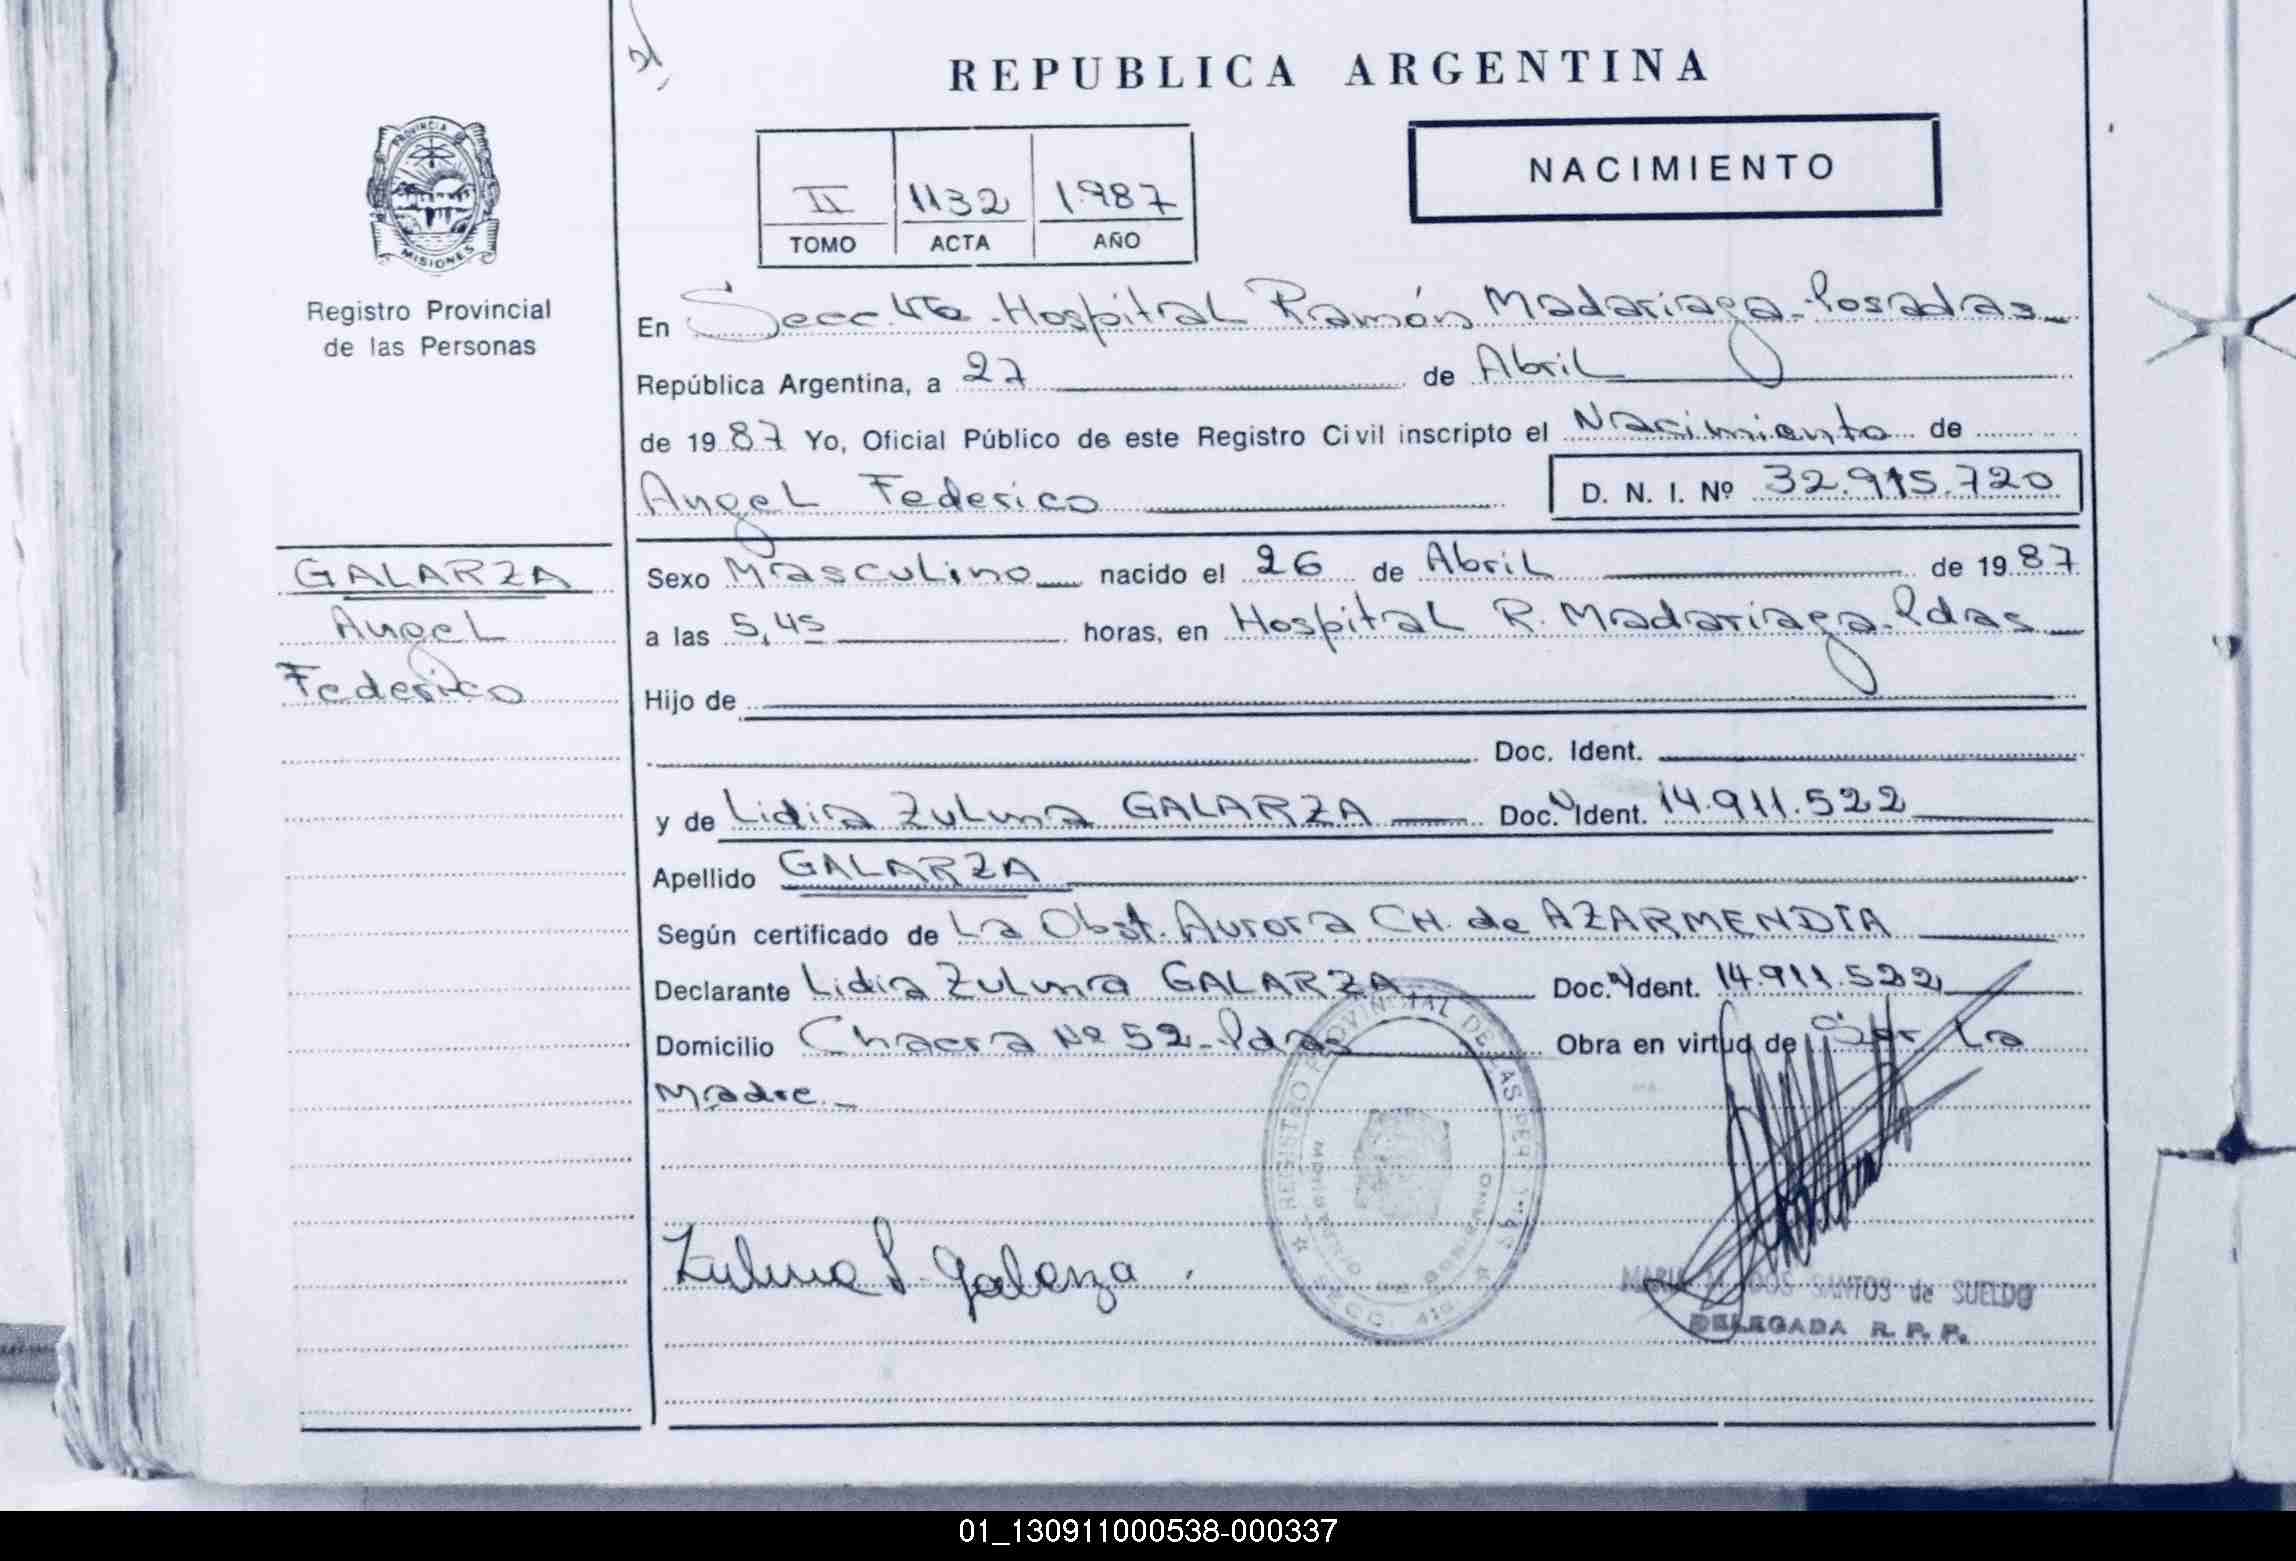 REPUBLICA ARGENTINA
PROVINCIA
MISIONES
Registro Provincial
de las Personas
II 1132 1.987
TOMO ACTA AÑO
NACIMIENTO
En Secc. 4ta - Hospital Ramón Madariaga - Posadas
República Argentina, a 27 de Abril
de 1987 Yo, Oficial Público de este Registro Civil inscripto el Nacimiento de
Angel Federico D. N. I. Nº 32.915.720
GALARZA
Angel
Federico
Sexo Masculino nacido el 26 de Abril de 1987
a las 5,45 horas, en Hospital R. Madariaga - Pdas
Hijo de
Doc. Ident.
y de Lidia Zulma GALARZA Doc. N Ident. 14.911.522
Apellido GALARZA
Según certificado de La Obst. Aurora CH. de AZARMENDIA
Declarante Lidia Zulma GALARZA Doc. N Ident. 14.911.522
Domicilio Chacra Nº 52 - Pdas Obra en virtud de Ser La
Madre. -
REGISTRO PROVINCIAL DE LAS PERSONAS
Zulma L. Galarza
DOS SANTOS de SUELDO
DELEGADA R. P. P.
01_130911000538-000337